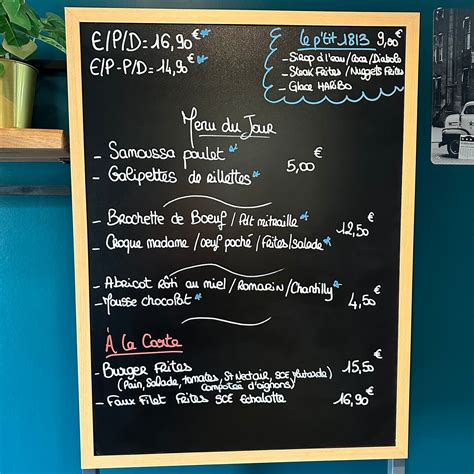 E/P/D = 16,90€*
E/P - P/D = 14,90€*
Le p'tit 1813 9,00€
- Sirop d'eau/Coca/Diabolo
- Steak Frites/Nuggets Frites
- Glace HARIBO
Menu du Jour
- Samoussa poulet*
- Galipettes de rillettes* 5,00€
- Brochette de Boeuf/Pdt mitraille*
- Croque madame/oeuf poché/Frites/salade* 12,50€
- Abricot Rôti au miel/Romarin/Chantilly*
- Mousse chocolat* 4,50€
À la Carte
- Burger Frites 15,50€
(Pain, Salade, tomates, St Nectaire, SCE Moutarde,
compotée d'oignons)
- Faux Filet Frites SCE Echalotte 16,90€